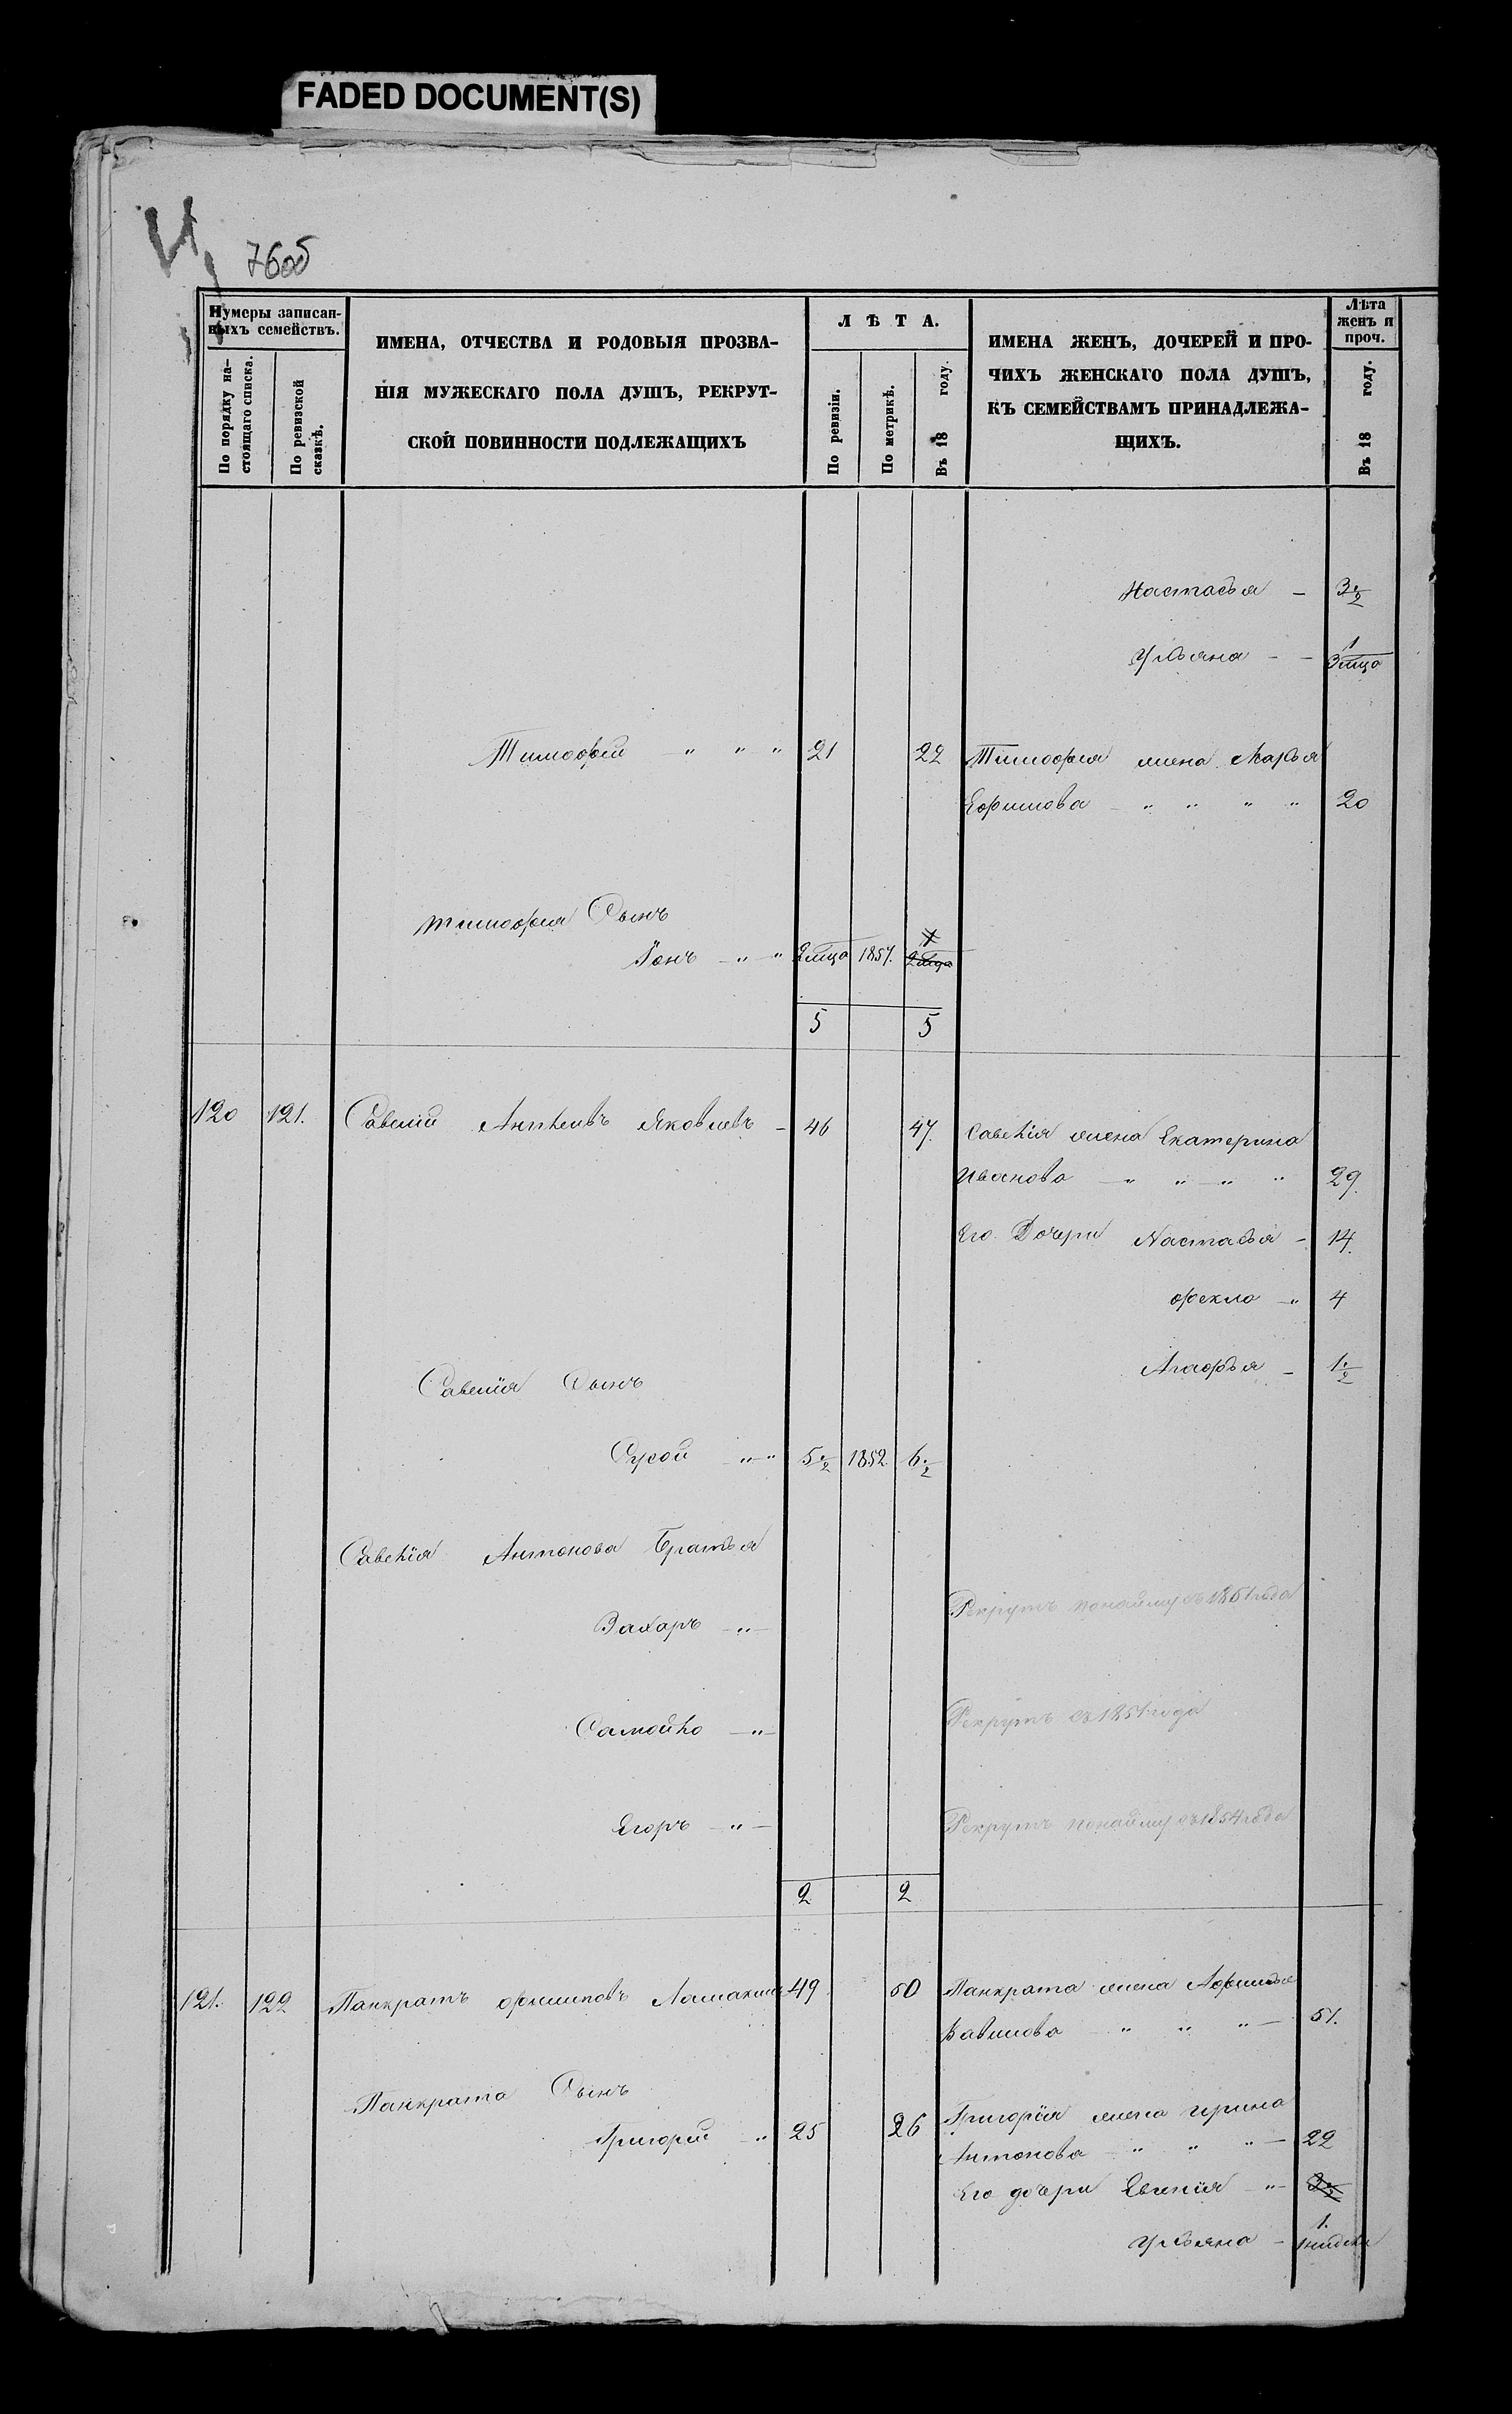 FADED DOCUMENT(S)
76об
Нумеры записан-
ныхъ семействъ.
По порядку на-
стоящаго списка.
По ревизской
сказкѣ.
ИМЕНА, ОТЧЕСТВА И РОДОВЫЯ ПРОЗВА-
НІЯ МУЖЕСКАГО ПОЛА ДУШЪ, РЕКРУТ-
СКОЙ ПОВИННОСТИ ПОДЛЕЖАЩИХЪ
ЛѢТА.
По ревизіи.
По метрикѣ.
Въ 18 году.
ИМЕНА ЖЕНЪ, ДОЧЕРЕЙ И ПРО-
ЧИХЪ ЖЕНСКАГО ПОЛА ДУШЪ,
КЪ СЕМЕЙСТВАМЪ ПРИНАДЛЕЖА-
ЩИХЪ.
Лѣта
женъ и
проч.
Въ 18 году.
Настасья - 3 1/2
Ульяна - - 1
3 мца
Тимофей " " " 21 22 Тимофея жена Марья
Ефимова " " " " 20
Тимофея Сынъ
Іонъ " " 2 мца 1857. 1
2 мца
5 5
120 121. Савелій Яковлевъ - 46 47. Савелія жена Екатерина
Иванова - " " - " " 29.
Его Дочери Настасья - 14.
Фекла - " 4
Агафья - 1 1/2
Савелія Сынъ
Сысой - " - " 5 1/2 1852 6 1/2
Савелія Антонова Братья
Захаръ - " - Рекрутъ по найму съ 1851 года
Самойло - " - Рекрутъ съ 1851 года
Егоръ - " - Рекрутъ по найму съ 1854 года
2 2
121. 122 Панкратъ Филиповъ 49 50 Панкрата жена Афимья
Вавилова " " " - 51.
Панкрата Сынъ
Григорій - " 25 26 Григорія жена Ирина
Антонова - " " " - 22
Его дочери Евгенія - "
Ульяна - 1.
1 недели